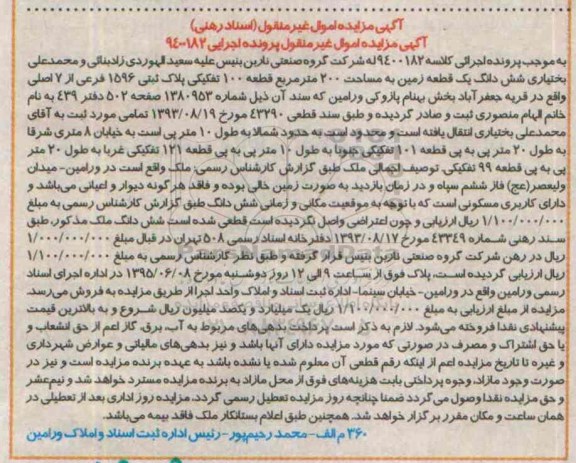 آگهی مزایده اموال غیر منقول (اسناد رهنی)
آگهی مزایده اموال غیر منقول پرونده اجرایی ۹۴۰۰۱۸۲
به موجب پرونده اجرائی کلاسه ۹۴۰۰۱۸۲ له شرکت گروه صنعتی نارین بنیس علیه سعید الهوردی زادبنائی و محمدعلی
بختیاری شش دانگ یک قطعه زمین به مساحت ۲۰۰ مترمربع قطعه ۱۰۰ تفکیکی پلاک ثبتی ۱۵۹۶ فرعی از ۷ اصلی
واقع در قریه جعفرآباد بخش بهنام پازوکی ورامین که سند آن ذیل شماره ۱۳۸۰۹۵۳ صفحه ۵۰۲ دفتر ۴۳۹ به نام
خانم الهام منصوری ثبت و صادر گردیده و طبق سند قطعی ۴۳۲۹۰ مورخ ۱۳۹۳/۰۸/۱۹ تمامی مورد ثبت به آقای
محمدعلی بختیاری انتقال یافته است و محدود است به حدود شمالا به طول ۱۰ متر پی است به خیابان ۸ متری شرقا
به طول ۲۰ متر پی به پی قطعه ۱۰۱ تفکیکی جنوبا به طول ۱۰ متر پی به پی قطعه ۱۲۱ تفکیکی غربا به طول ۲۰ متر
پی به پی قطعه ۹۹ تفکیکی. توصیف اجمالی ملک طبق گزارش کارشناس رسمی: ملک واقع است در ورامین- میدان
ولیعصر(عج) فاز ششم سپاه و در زمان بازدید به صورت زمین خالی بوده و فاقد هر گونه دیوار و اعیانی می‌باشد و
دارای کاربری مسکونی است که با توجه به موقعیت مکانی و زمانی شش دانگ طبق گزارش کارشناس رسمی به مبلغ
۱/۱۰۰/۰۰۰/۰۰۰ ریال ارزیابی و چون اعتراضی واصل نگردیده است قطعی شده است شش دانگ ملک مذکور، طبق
سند رهنی شماره ۴۳۳۴۹ مورخ ۱۳۹۳/۰۸/۱۷ دفترخانه اسناد رسمی ۵۰۸ تهران در قبال مبلغ ۱/۰۰۰/۰۰۰/۰۰۰
ریال در رهن شرکت گروه صنعتی نارین بنیس قرار گرفته و طبق نظر کارشناس رسمی به مبلغ ۱/۱۰۰/۰۰۰/۰۰۰
ریال ارزیابی گردیده است، پلاک فوق از ساعت ۹ الی ۱۲ روز دوشنبه مورخ ۱۳۹۵/۰۶/۰۸ در اداره اجرای اسناد
رسمی ورامین واقع در ورامین- خیابان سینما- اداره ثبت اسناد و املاک واحد اجرا از طریق مزایده به فروش می‌رسد.
مزایده از مبلغ ارزیابی به مبلغ ۱/۱۰۰/۰۰۰/۰۰۰ ریال یک میلیارد و یکصد میلیون ریال شروع و به بالاترین قیمت
پیشنهادی نقدا فروخته می‌شود. لازم به ذکر است پرداخت بدهی‌های مربوط به آب، برق، گاز اعم از حق انشعاب و
یا حق اشتراک و مصرف در صورتی که مورد مزایده دارای آنها باشد و نیز بدهی‌های مالیاتی و عوارض شهرداری
و غیره تا تاریخ مزایده اعم از اینکه رقم قطعی آن معلوم شده یا نشده باشد به عهده برنده مزایده است و نیز در
صورت وجود مازاد، وجوه پرداختی بابت هزینه‌های فوق از محل مازاد به برنده مزایده مسترد خواهد شد و نیم‌عشر
و حق مزایده نقدا وصول می گردد ضمنا چنانچه روز مزایده تعطیل رسمی گردد، مزایده روز اداری بعد از تعطیلی در
همان ساعت و مکان مقرر برگزار خواهد شد. همچنین طبق اعلام بستانکار ملک فاقد بیمه می‌باشد.
۳۶۰ م الف - محمد رحیم‌پور - رئیس اداره ثبت اسناد و املاک ورامین